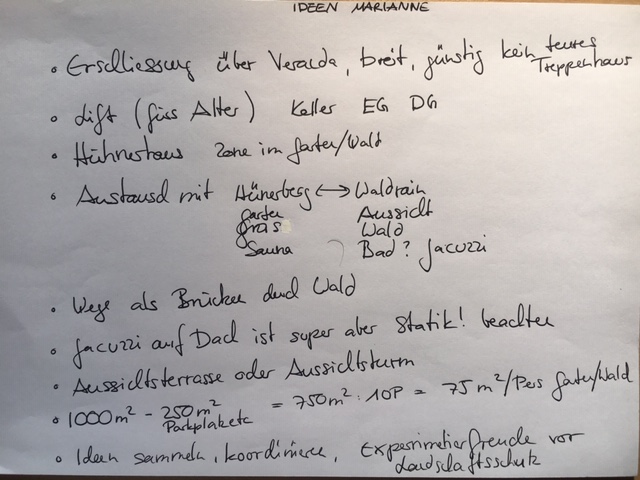 IDEEN MARIANNE
• Erschliessung über Veranda, breit, günstig kein teures Treppenhaus
• Lift (fürs Alter) Keller EG DG
• Hühnerhaus Zone im Garten/Wald
• Austausch mit Hünerberg ↔ Waldrain
Garten Aussicht
Gras Wald
Sauna Bad? Jacuzzi
• Wege als Brücken durch Wald
• Jacuzzi auf Dach ist super aber Statik! beachten
• Aussichtsterrasse oder Aussichtsturm
• 1000m² - 250m² = 750m² : 10P = 75m²/Pers Garten/Wald
Parkplakete
• Ideen sammeln, koordinieren, Experimentierfreude vor
Landschaftsschutz